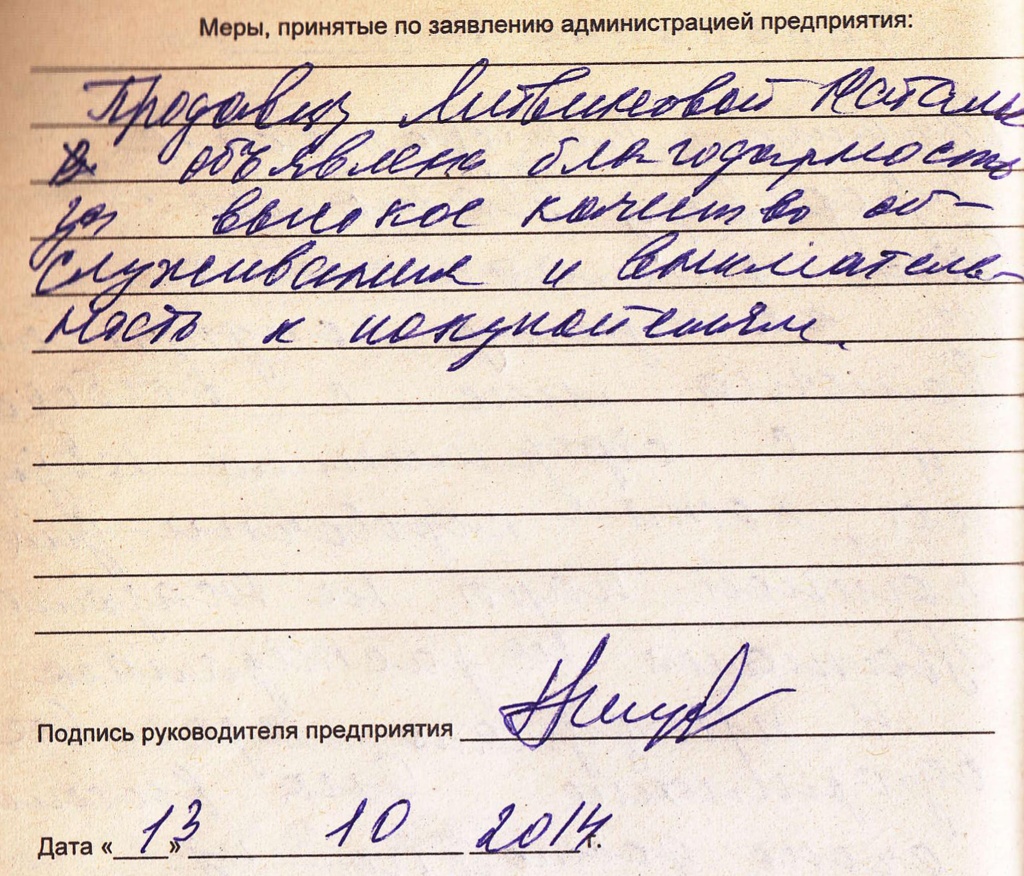 Меры, принятые по заявлению администрацией предприятия:
Продавцу Литвиновой Наталье
объявлена благодарность
за высокое качество об-
служивания и вниматель-
ность к покупателям.
Подпись руководителя предприятия
Дата «13» 10 2014 г.